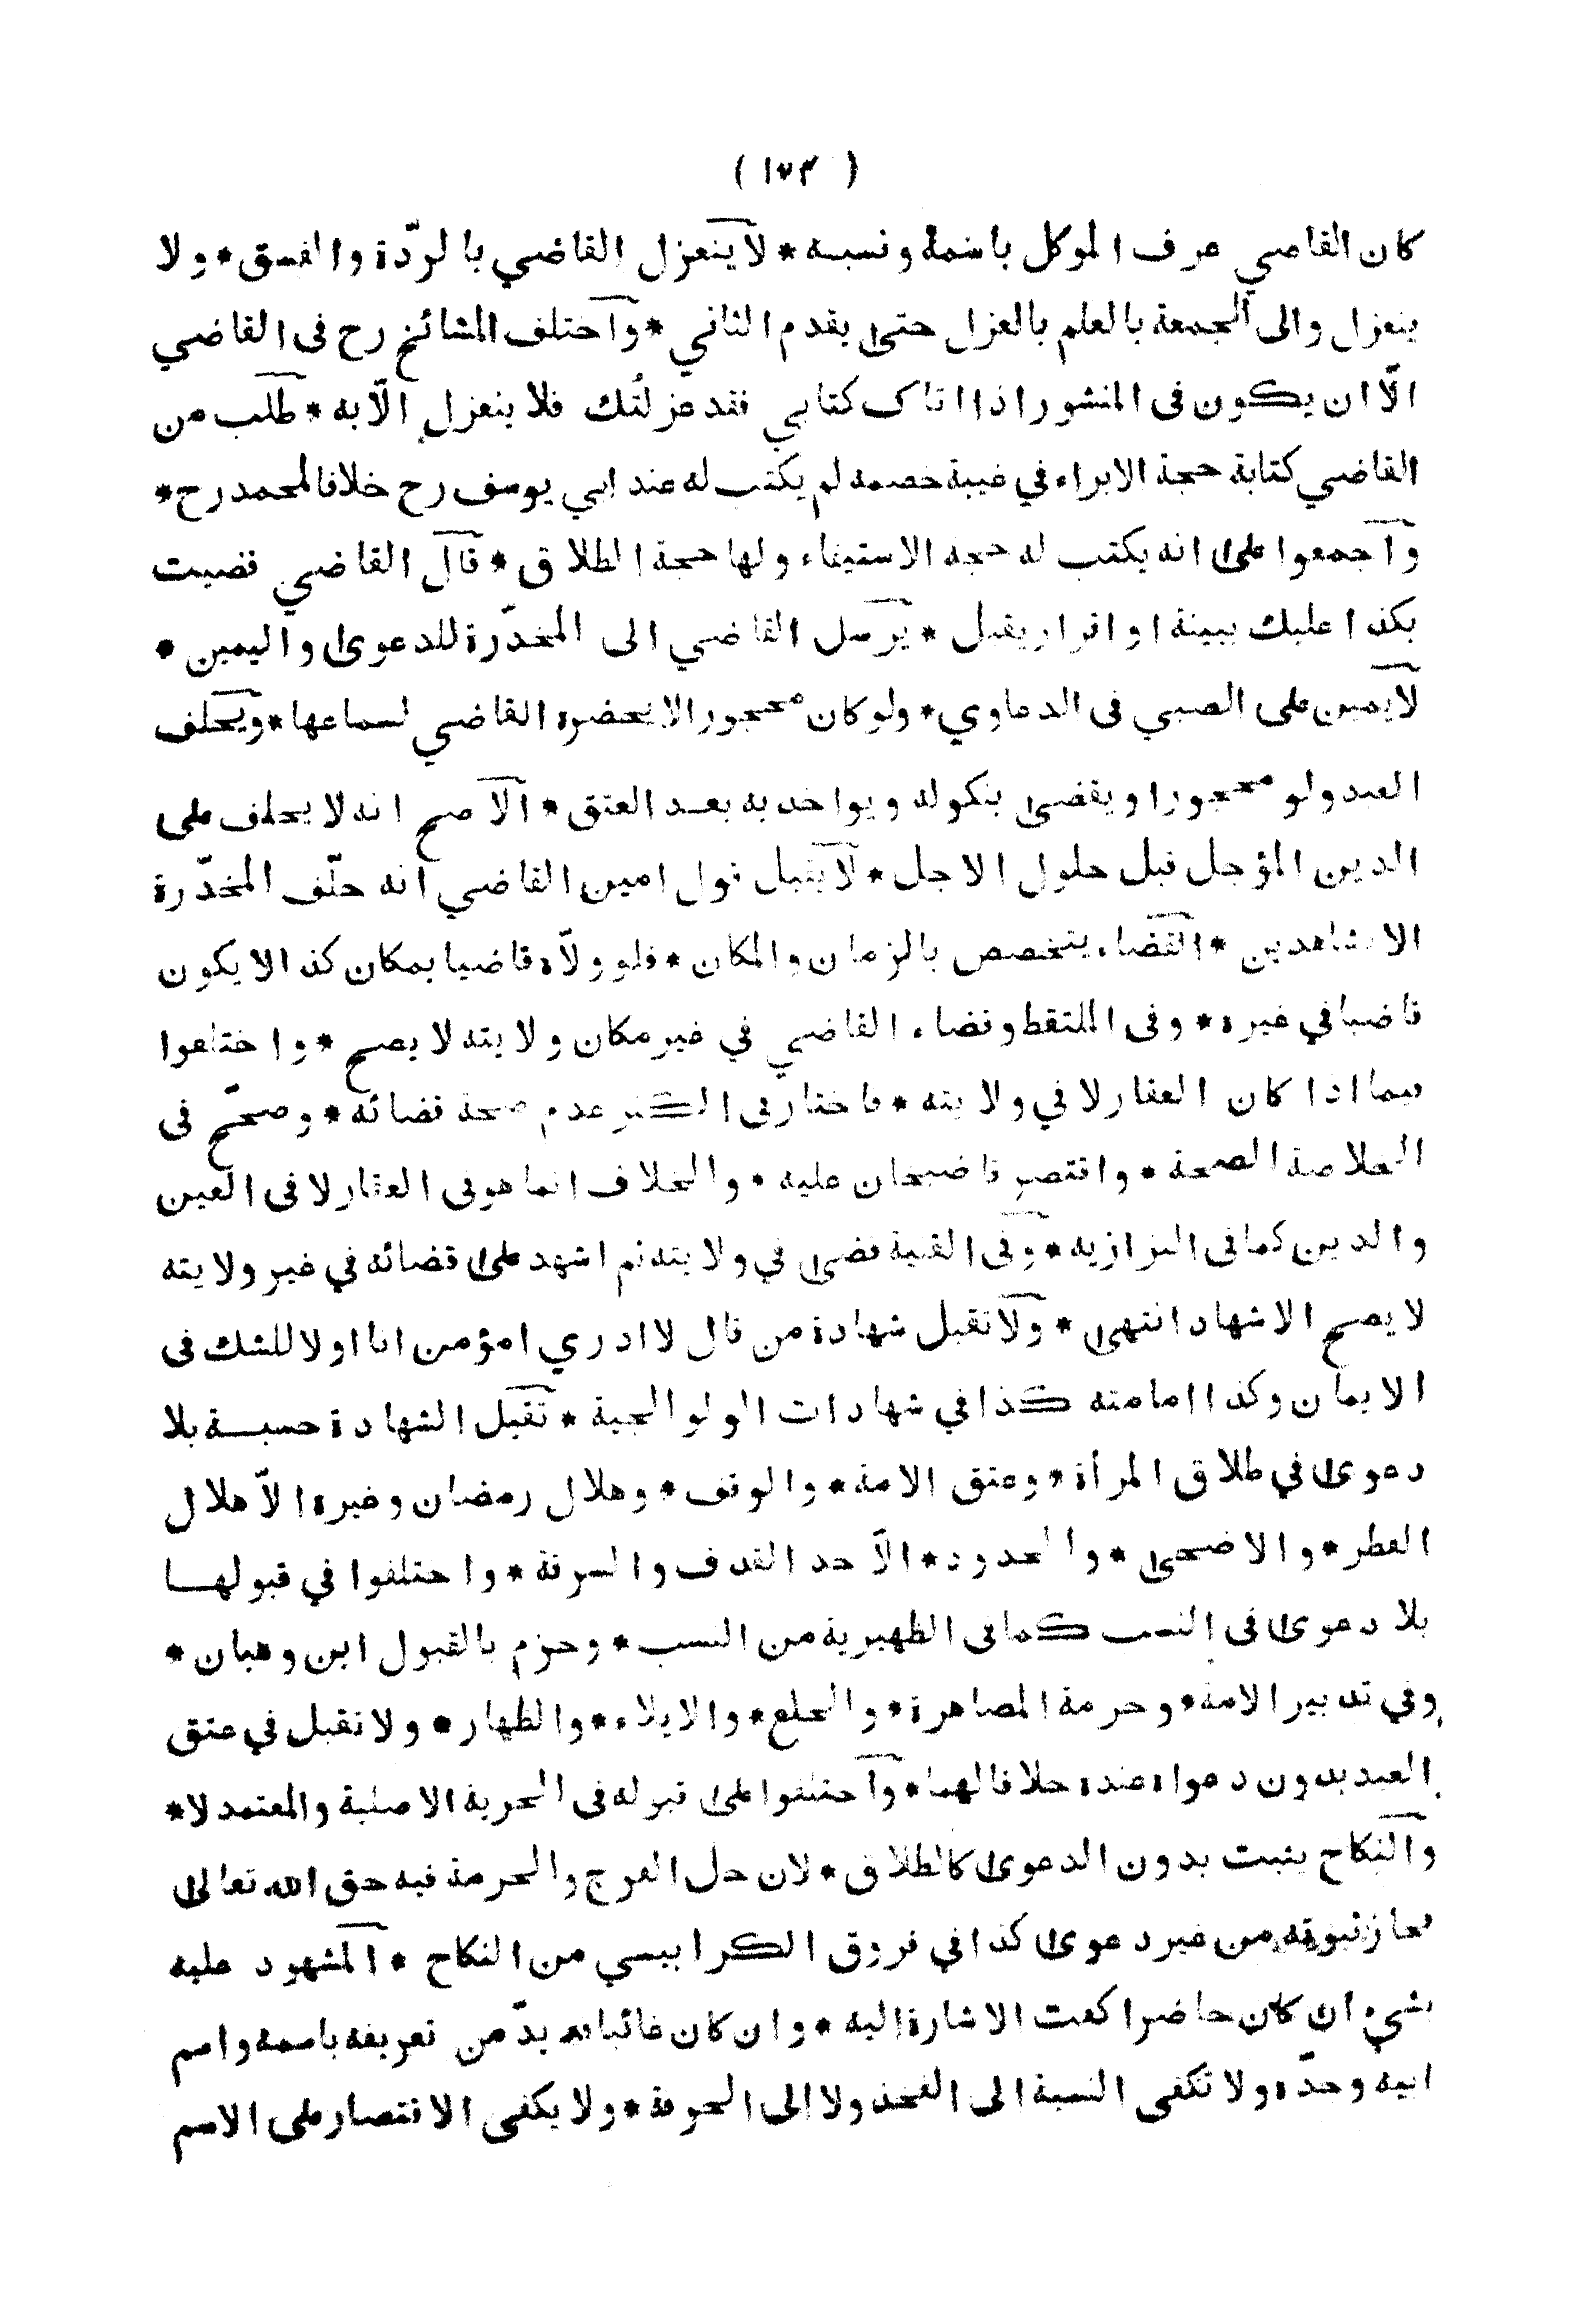 ( ١٧٣ )
كان القاضي عرف الموكل باسمه ونسبه * لا ينعزل القاضي بالردّة والفسق * ولا
ينعزل والى الجمعة بالعلم بالعزل حتى يقدم الثاني * واختلف المشائخ رح فى القاضي
الّا ان يكون فى المنشور اذا اتاك كتابي فقد عزلتُك فلا ينعزل الّا به * طلب من
القاضي كتابة حجة الابراء في غيبة خصمه لم يكتب له عند ابي يوسف رح خلافا لمحمد رح *
واجمعوا على انه يكتب له حجة الاستيفاء ولها حجة الطلاق * قال القاضي قضيت
بكذا عليك ببينة او اقرار يقبل * يرسل القاضي الى المخدّرة للدعوى واليمين *
لا يمين على الصبي فى الدعاوي * ولو كان محجورا لا يحضره القاضي لسماعها * ويحلف
العبد ولو محجورا ويقضى بنكوله ويواخد به بعد العتق * الاصح انه لا يحلف على
الدين المؤجل قبل حلول الاجل * لا يقبل قول امين القاضي انه حلّف المخدّرة
الا بشاهدين * القضاء يتخصص بالزمان والمكان * فلو ولّاه قاضيا بمكان كذا لا يكون
قاضيا في غيره * وفى الملتقط وقضاء القاضي في غير مكان ولايته لا يصح * واختلفوا
فيما اذا كان العقار لا في ولايته * فاختار فى الكنز عدم صحة قضائه * وصحّح فى
الخلاصة الصحة * واقتصر قاضيخان عليه * والخلاف انما هو فى العقار لا فى العين
والدين كما فى البزازيه * وفى القنية قضى في ولايته ثم اشهد على قضائه في غير ولايته
لا يصح الاشهاد انتهى * ولا تقبل شهادة من قال لا ادري امؤمن انا او لا للشك فى
الايمان وكذا امامته كذا في شهادات الولوالجية * تقبل الشهادة حسبة بلا
دعوى في طلاق المرأة * وعتق الامة * والوقف * وهلال رمضان وغيره الّا هلال
الفطر * والاضحى * والحدود * الّا حد القذف والسرقة * واختلفوا في قبولها
بلا دعوى فى النسب كما فى الظهيرية من النسب * وجزم بالقبول ابن وهبان *
وفي تدبير الامة * وحرمة المصاهرة * والخلع * والايلاء * والظهار * ولا تقبل في عتق
العبد بدون دعواه عنده خلافا لهما * واختلفوا على قبوله فى الحرية الاصلية والمعتمد لا *
والنكاح يثبت بدون الدعوى كالطلاق * لان حل الفرج والحرمة فيه حق الله تعالى
فجاز ثبوته من غير دعوى كذا في فروق الكرابيسي من النكاح * المشهود عليه
بشيء ان كان حاضرا كفت الاشارة اليه * وان كان غائبا بدّ من تعريفه باسمه واسم
ابيه وجدّه ولا تكفى النسبة الى الفخذ ولا الى الحرفة * ولا يكفى الاقتصار على الاسم